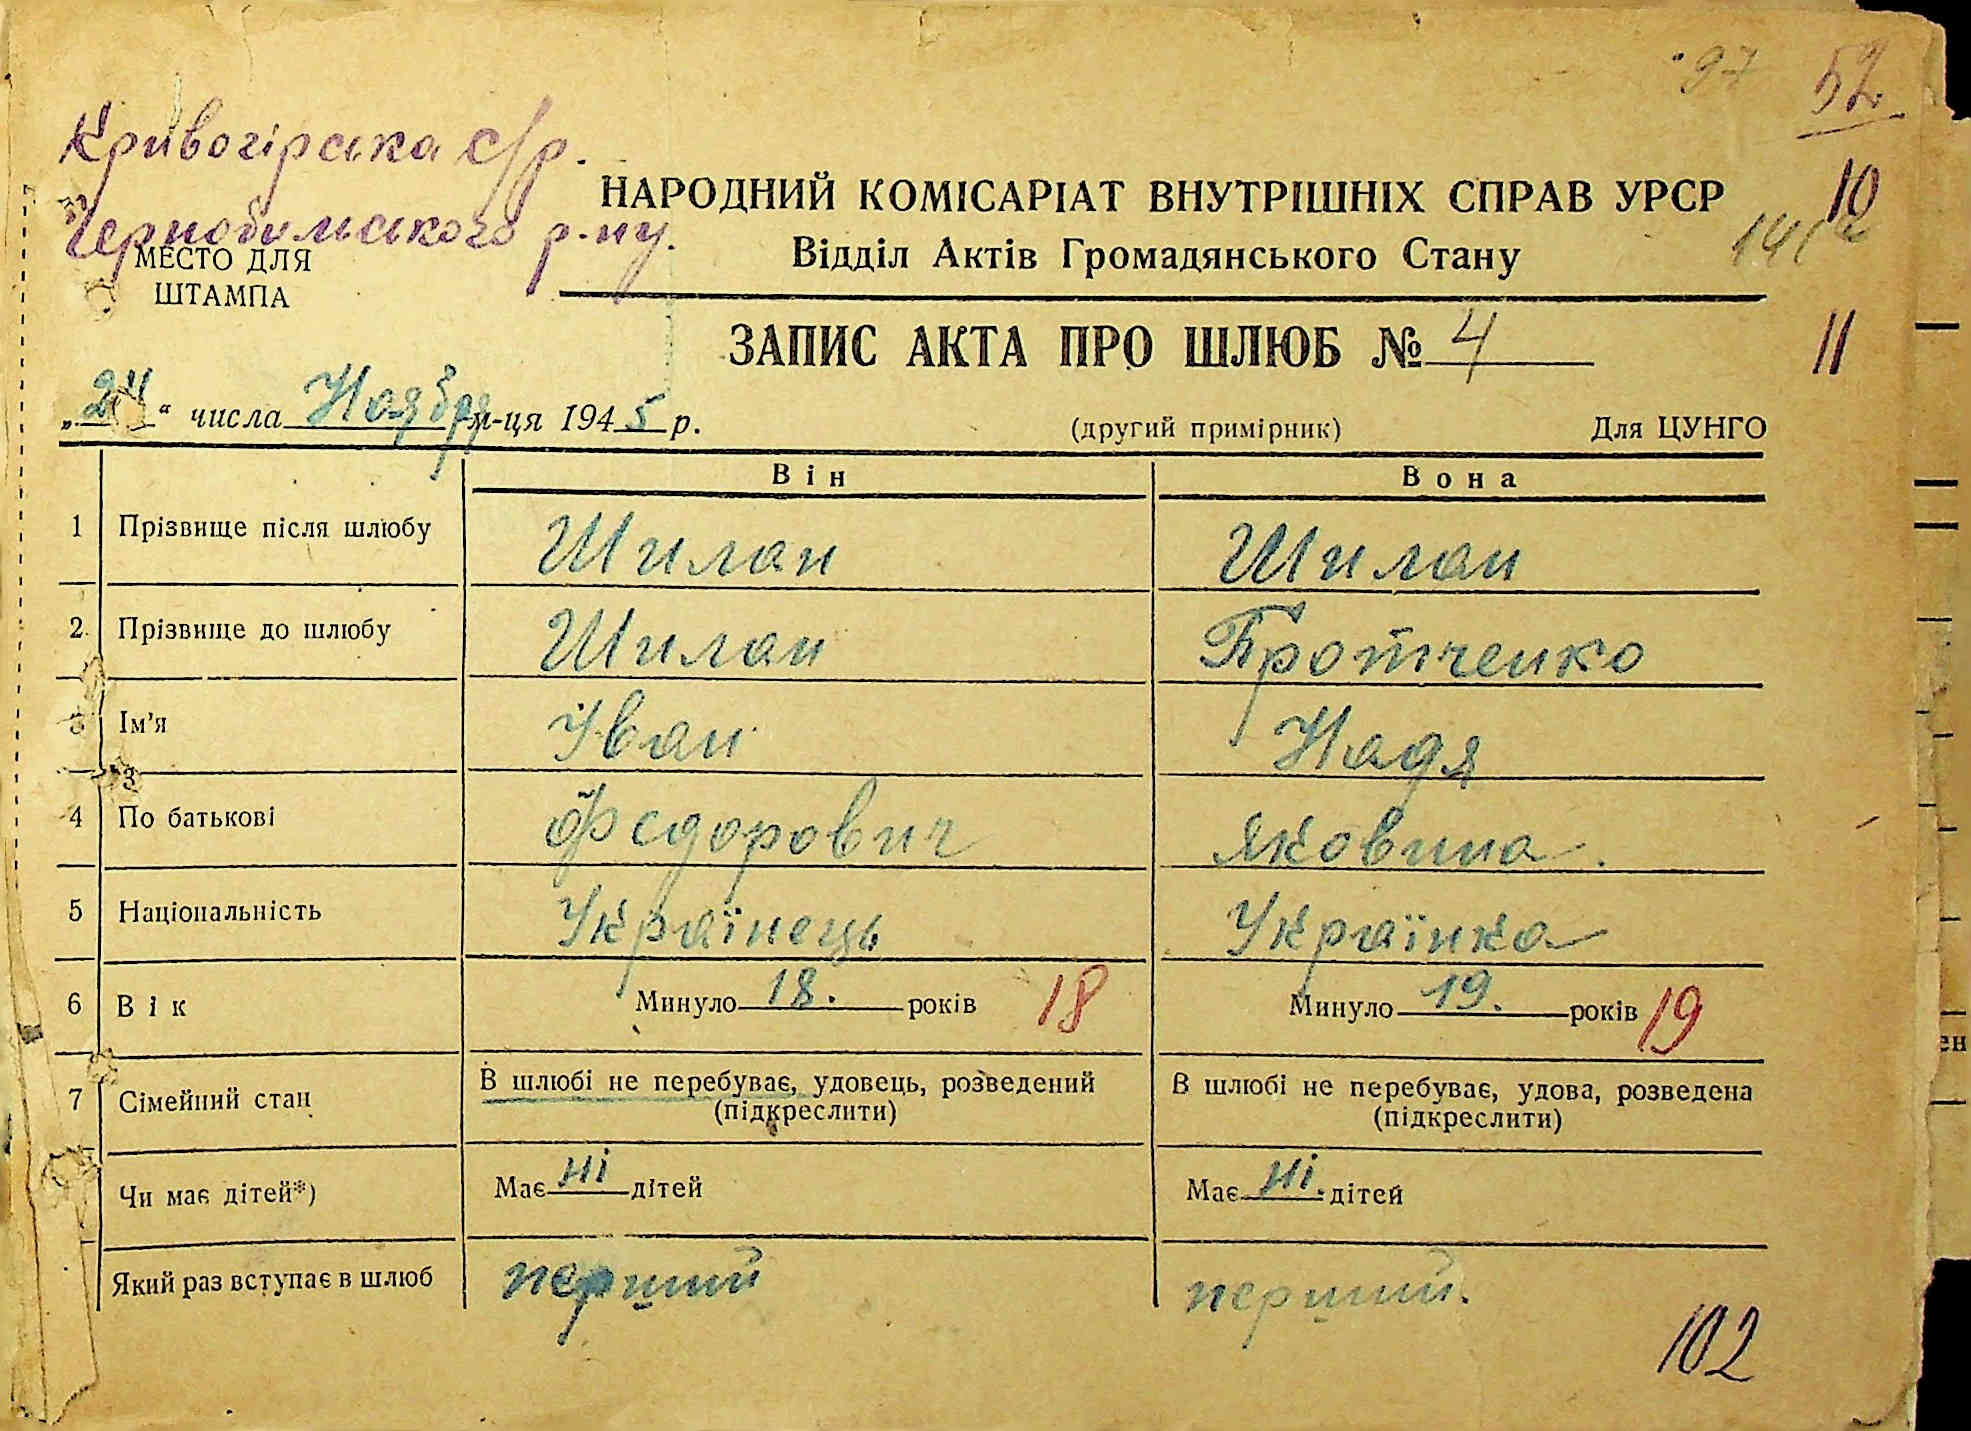 97 52
Кривогірська с/р.
Чернобильського р-ну.
МЕСТО ДЛЯ
ШТАМПА
НАРОДНИЙ КОМІСАРІАТ ВНУТРІШНІХ СПРАВ УРСР
10
Відділ Актів Громадянського Стану
ЗАПИС АКТА ПРО ШЛЮБ № 4
11
„24“ числа Ноября м-ця 1945 р.
(другий примірник) Для ЦУНГО
Він Вона
1 Прізвище після шлюбу Шилан Шилан
2 Прізвище до шлюбу Шилан Бротченко
3 Ім'я Іван Надя
4 По батькові Федорович Яковина.
5 Національність Українець Українка
6 Вік Минуло 18. років 18 Минуло 19. років 19
7 Сімейний стан В шлюбі не перебуває, удовець, розведений В шлюбі не перебуває, удова, розведена
(підкреслити) (підкреслити)
Чи має дітей*) Має ні дітей Має ні. дітей
Який раз вступає в шлюб перший перший.
102